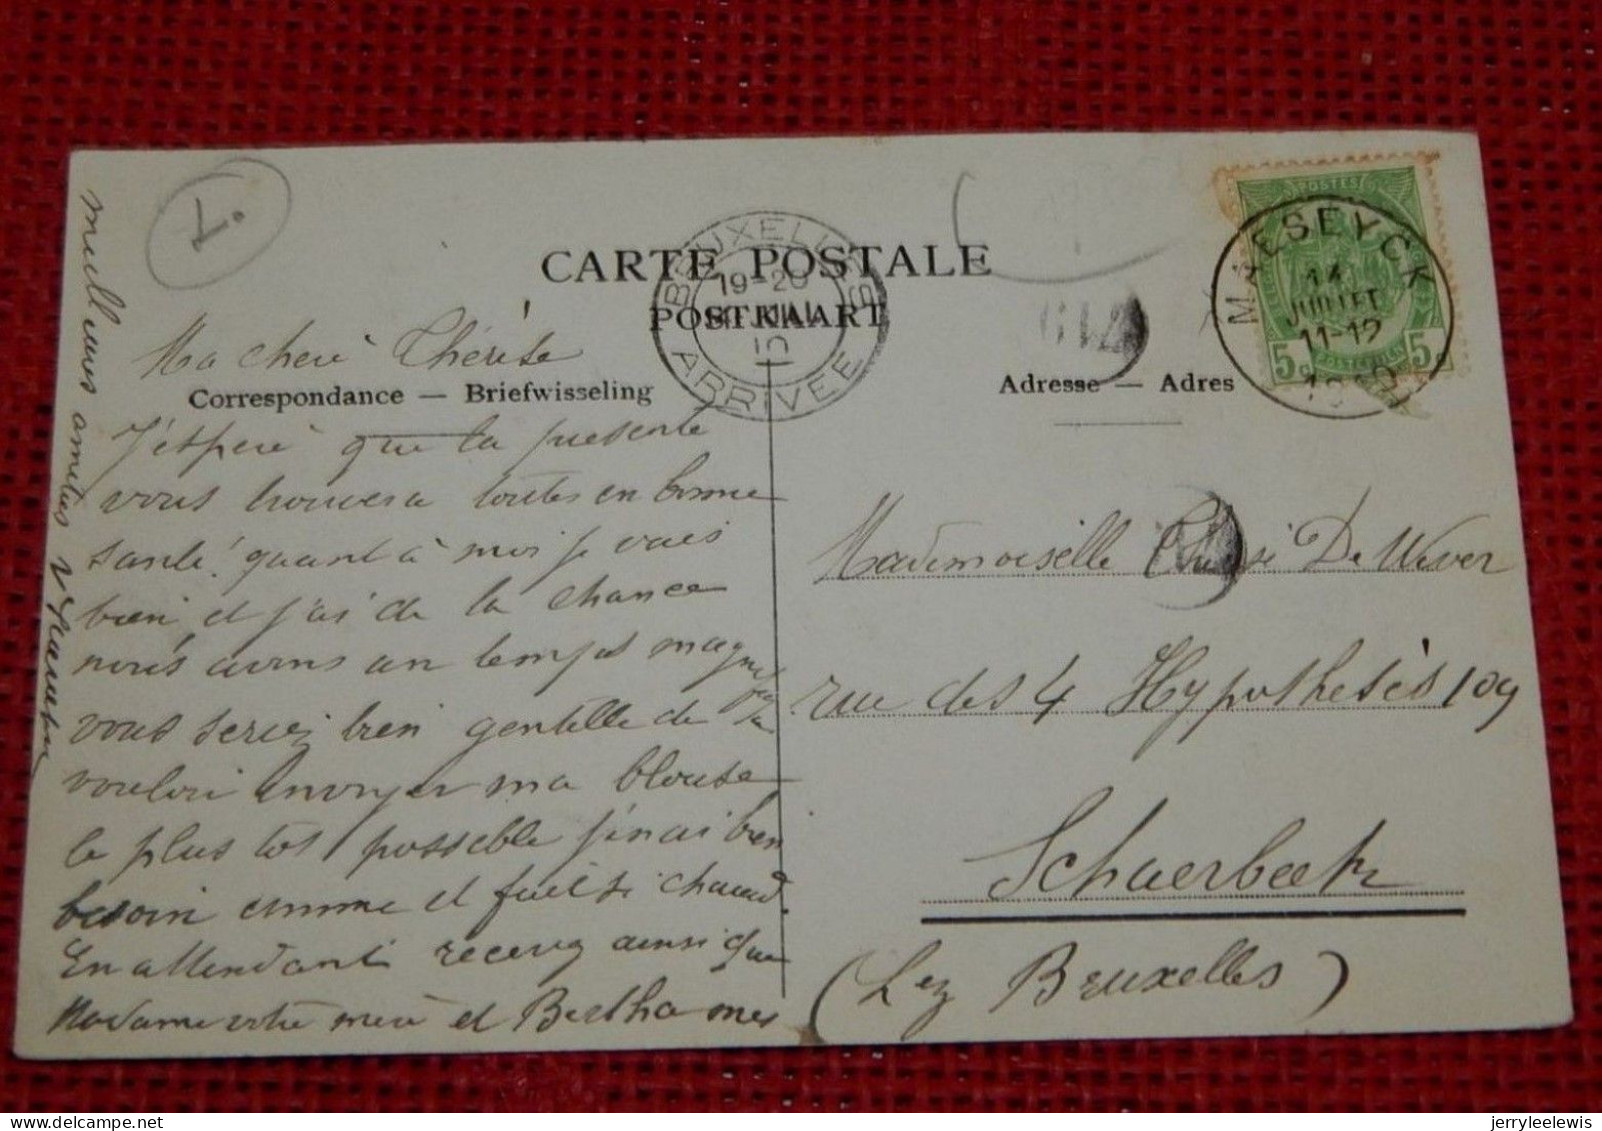 L.
CARTE POSTALE
POSTKAART
Correspondance — Briefwisseling
Adresse — Adres
BRUXELLES
19-20
JUIL
10
ARRIVÉE
MAESEYCK
14
JUILLET
11-12
1910
POSTES
5c 5c
Ma cheré Thérèse
J'éspère que la présente
vous trouvera toutes en bonne
santé! quant à moi je vais
bien et j'ai de la chance
nous avons un temps magnifique
vous seriez bien gentille de
vouloir envoyer ma blouse
le plus tot possible j'en ai bien
besoin comme il fait si chaud.
En attendant recevez ainsi que
Madame votre mère et Bertha mes
meilleures amitiés
Mademoiselle Thérèse De Wever
rue des 4 Hypothesès 109
Schaerbeek
(Lez Bruxelles)
jerryleelewis